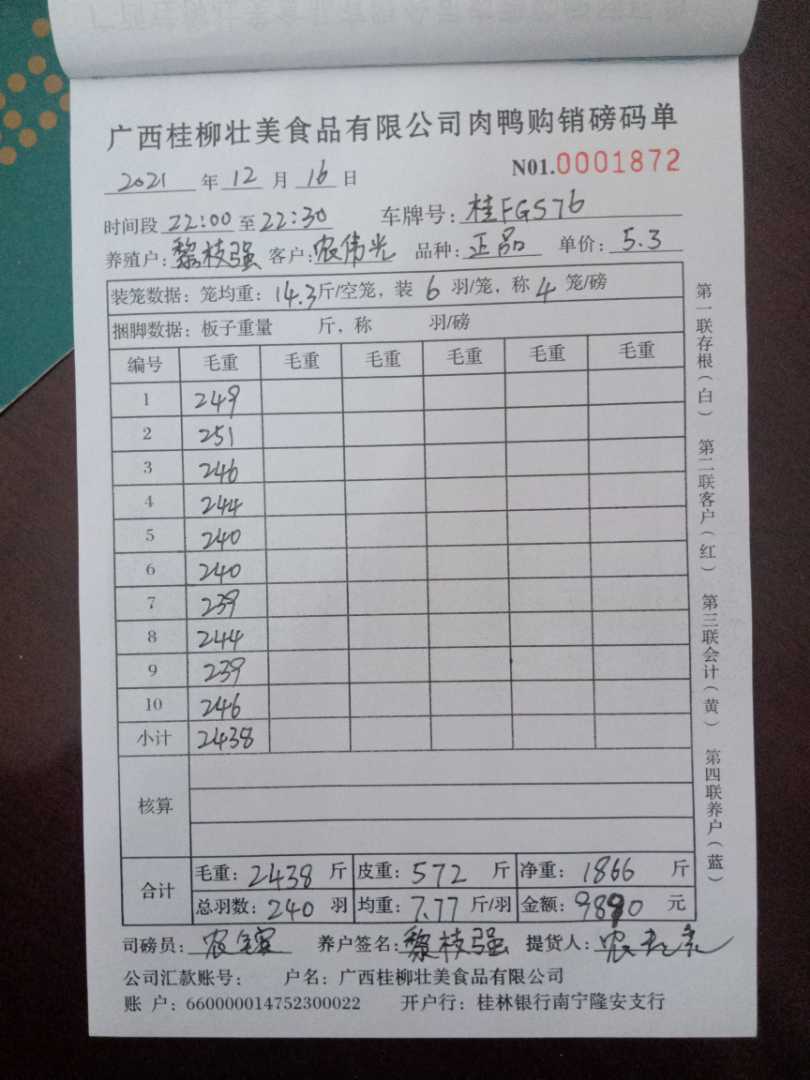 广西桂柳壮美食品有限公司肉鸭购销磅码单
2021 年 12 月 16 日 N01.0001872
时间段 22:00 至 22:30 车牌号: 桂FG576
养殖户: 黎枝强 客户: 农伟光 品种: 正品 单价: 5.3
装笼数据: 笼均重: 14.3斤/空笼, 装 6 羽/笼, 称 4 笼/磅
捆脚数据: 板子重量 斤, 称 羽/磅
编号 毛重 毛重 毛重 毛重 毛重 毛重
1 249
2 251
3 246
4 244
5 240
6 240
7 239
8 244
9 239
10 246
小计 2438
核算
合计 毛重: 2438 斤 皮重: 572 斤 净重: 1866 斤
总羽数: 240 羽 均重: 7.77 斤/羽 金额: 9890 元
司磅员: 农 养户签名: 黎枝强 提货人: 农
公司汇款账号: 户名: 广西桂柳壮美食品有限公司
账 户: 660000014752300022 开户行: 桂林银行南宁隆安支行
第一联存根(白) 第二联客户(红) 第三联会计(黄) 第四联养户(蓝)